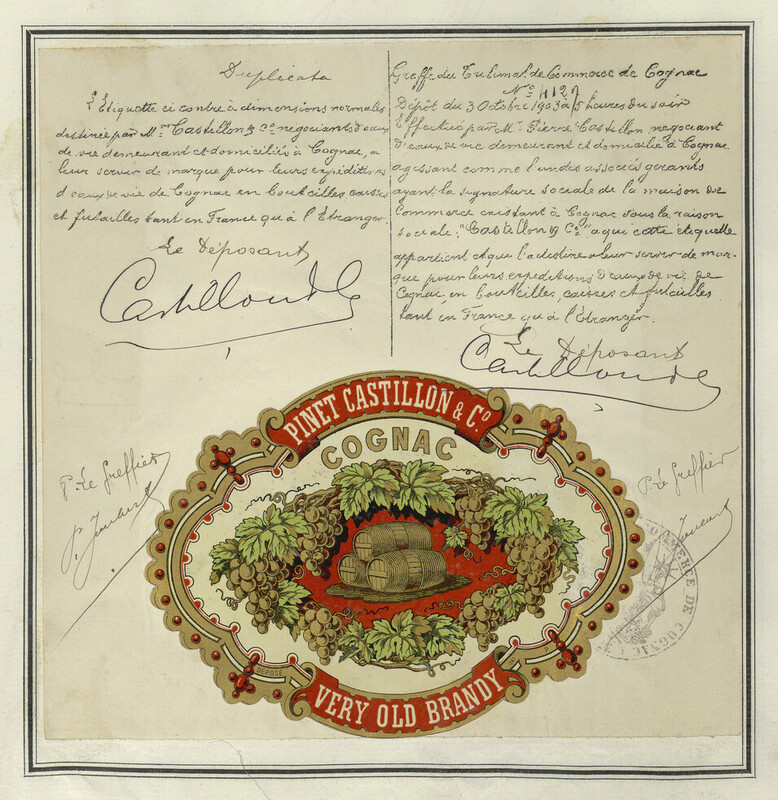 Duplicata
L'Etiquette ci contre à dimensions normales
destinée par Mrs Castillon & Co négociants d'eaux
de vie demeurant et domiciliés à Cognac, à
leur servir de marque pour leurs expéditions
d'eaux de vie de Cognac en bouteilles, caisses
et futailles tant en France qu'à l'Etranger.
Le Déposant
Greffe du Tribunal de Commerce de Cognac
No 4127
Dépôt du 3 Octobre 1903 à 5 heures du soir
Effectué par Mr Pierre Castillon, négociant
d'eaux de vie demeurant et domicilié à Cognac
agissant comme l'un des associés gérants
ayant la signature sociale de la maison de
Commerce existant à Cognac sous la raison
sociale: "Castillon & Co" à qui cette étiquette
appartient et qui l'a destine à leur servir de mar-
que pour leurs expéditions d'eaux de vie de
Cognac, en bouteilles, caisses et futailles
tant en France qu'à l'Etranger.
Le Déposant
PINET CASTILLON & Co
COGNAC
P. Le Greffier
P. Le Greffier
DE COGNAC
DEPOSE
VERY OLD BRANDY